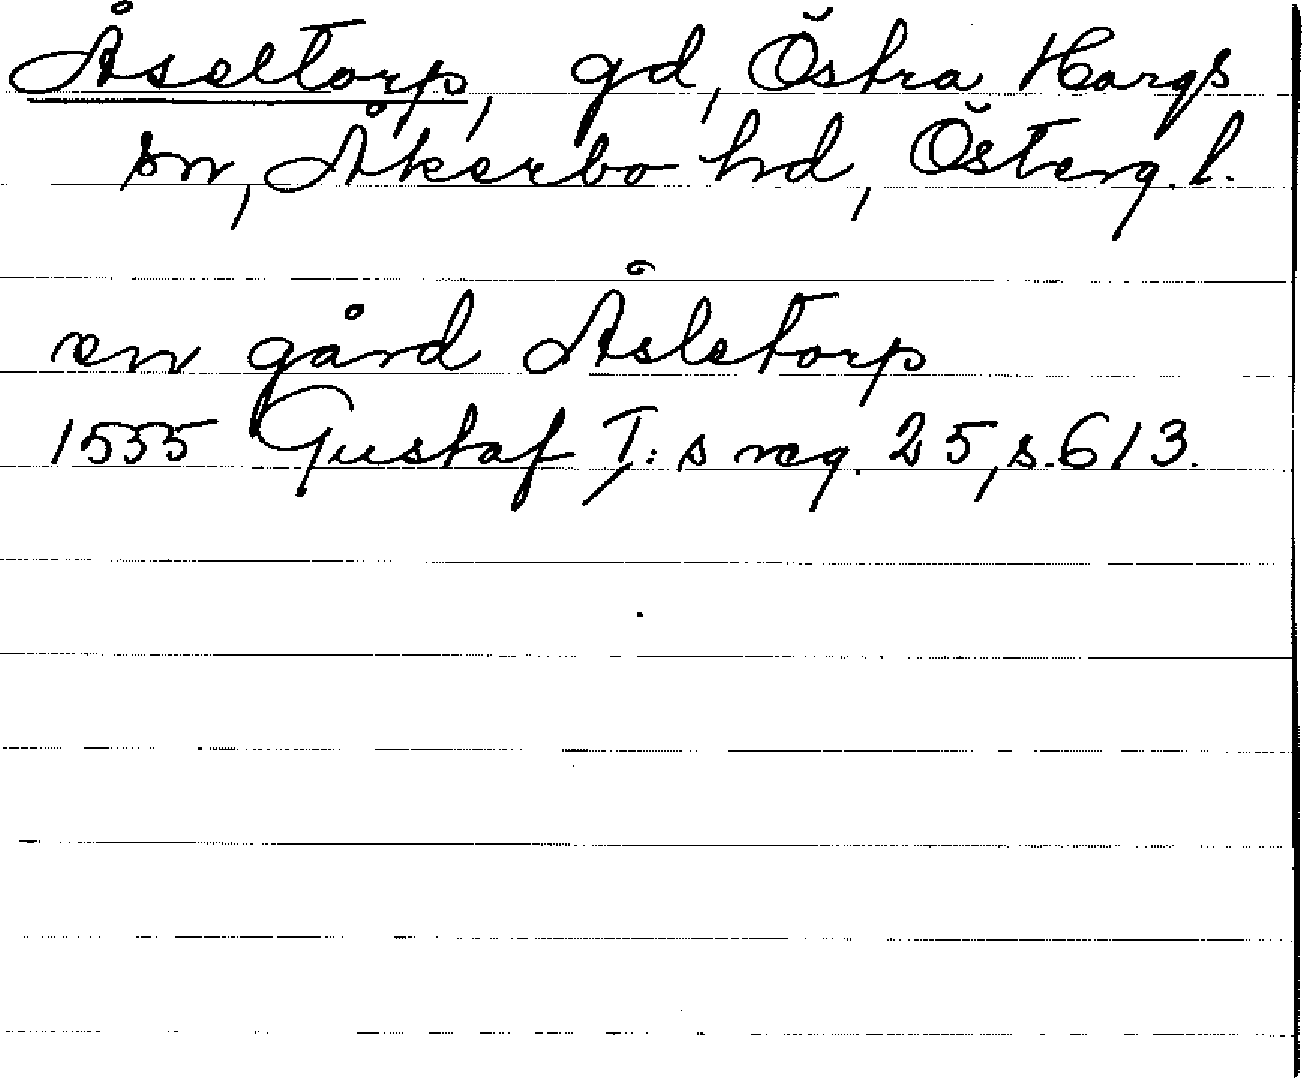 Åseltorp, gd, Östra Hargs
sn, Åkerbo hd, Österg. l.
en gård Åsletorp
1555 Gustaf I:s reg. 25, s. 613.